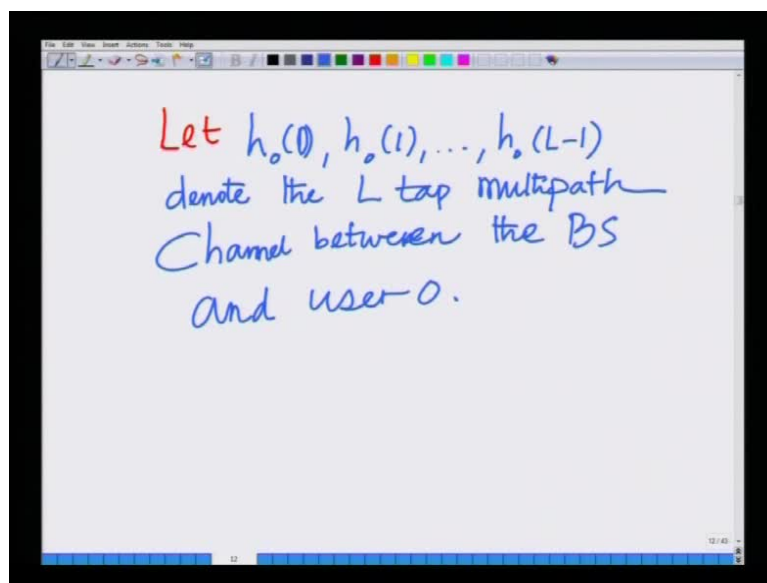 File Edit View Insert Actions Tools Help
Let h₀(0), h₀(1), ..., h₀(L-1)
denote the L tap multipath
Channel between the BS
and user 0.
12/43
12